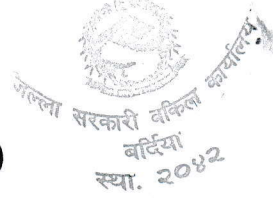 जिल्ला सरकारी वकिल कार्यालय
बर्दिया
स्था. २०४२